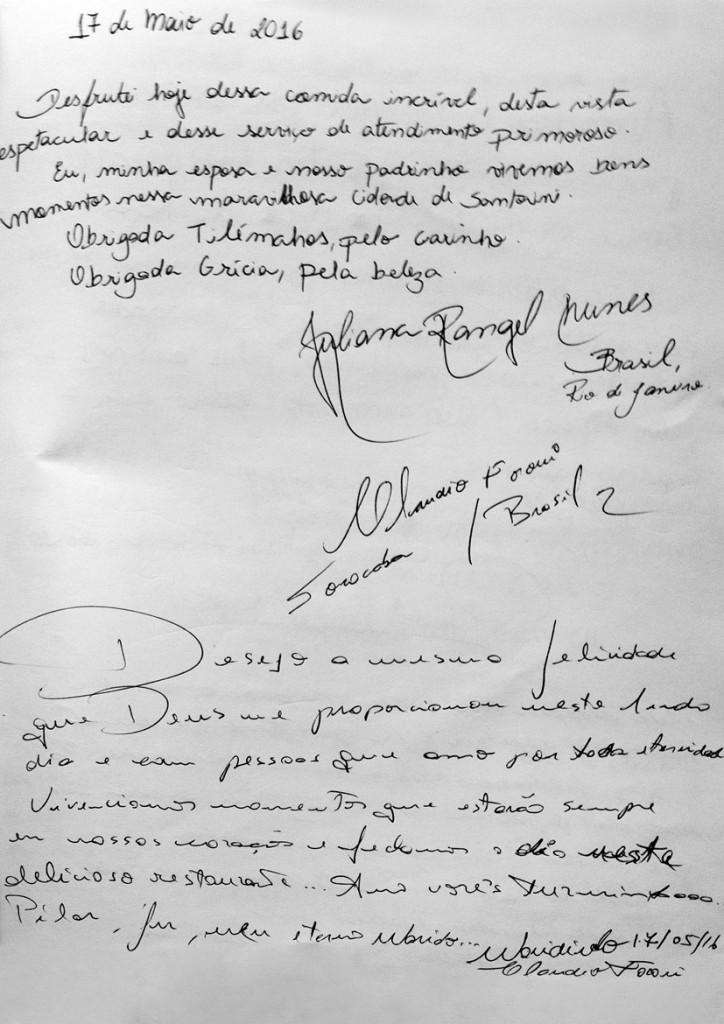 17 de Maio de 2016
Desfrutei hoje dessa comida incrível, desta vista
espetacular e desse serviço de atendimento primoroso.
Eu, minha esposa e nosso padrinho vivemos bons
momentos nessa maravilhosa cidade de Santorini.
Obrigada Tilémahos, pelo carinho.
Obrigada Grécia, pela beleza.
Juliana Rangel Nunes
Brasil,
Rio de Janeiro.
Claudio
Sorocaba / Brasil
Desejo a mesma felicidade
que Deus me proporcionou neste lindo
dia e com pessoas que amo por toda eternidade
Vivenciamos momentos que estarão sempre
em nossos coração e fechamos o dia nesta
delicioso restaurante... Amo vocês
Pilar, Ju, meu eterno Marido... 17/05/16
Claudio